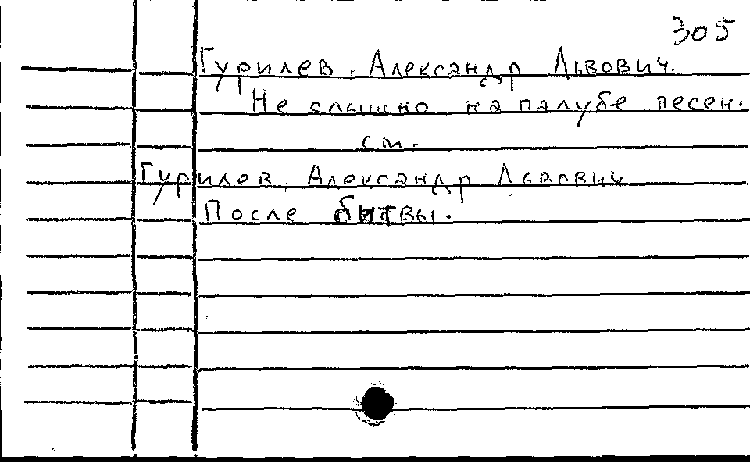 305
Гурилев, Александр Львович.
Не слышно на палубе песен.
см.
Гурилев, Александр Львович
После битвы.